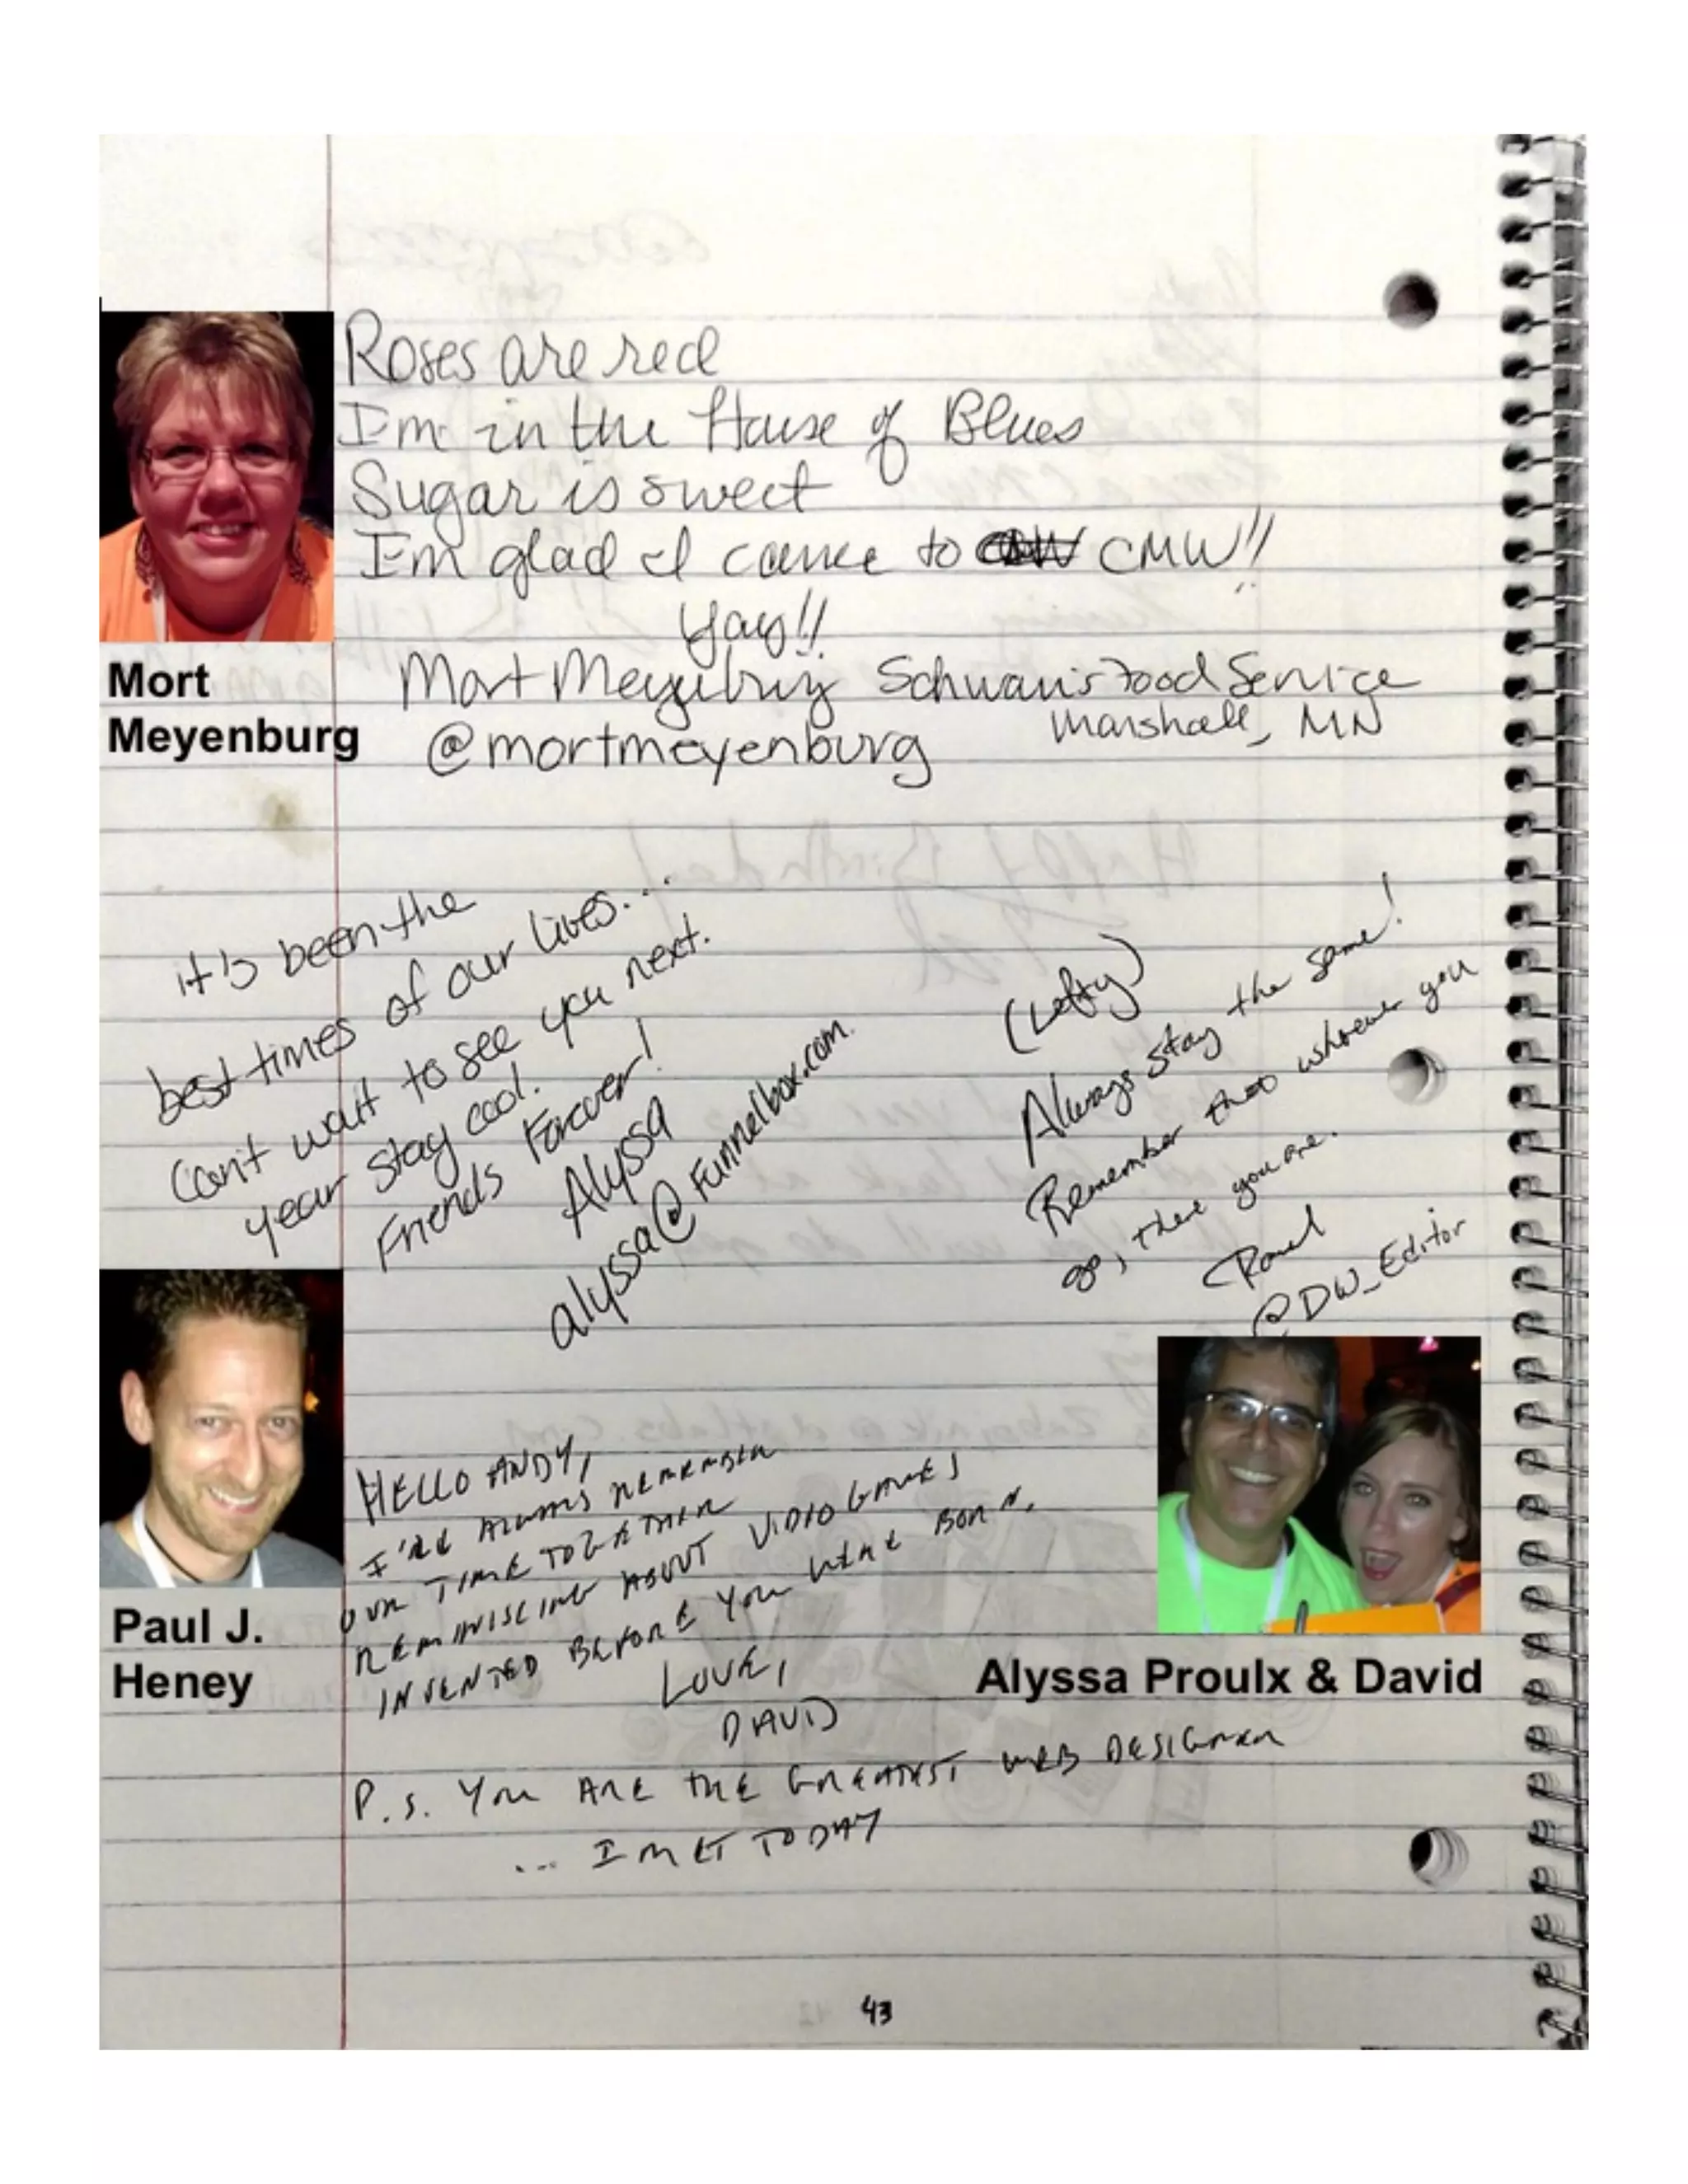 Roses are red
I'm in the House of Blues
Sugar is sweet
I'm glad I came to CMW!!
Yay!!
Mort Meyenburg Schwan's Food Service
Marshall, MN
@mortmeyenburg
Mort
Meyenburg
it's been the
best times of our lives...
Can't wait to see you next
year. Stay cool.
Friends Forever!
Alyssa
alyssa@Funnelbox.com
(Lefty)
Always stay the same!
Remember that wherever you
go, there you are.
Paul
@DW_Editor
Paul J.
Heney
HELLO ANDY,
I'LL ALWAYS REMEMBER
OUR TIME TOGETHER
REMINISCING ABOUT VIDEO GAMES
INVENTED BEFORE YOU WERE BORN.
LOVE,
DAVID
Alyssa Proulx & David
P.S. YOU ARE THE GREATEST WEB DESIGNER
... I MET TODAY
43